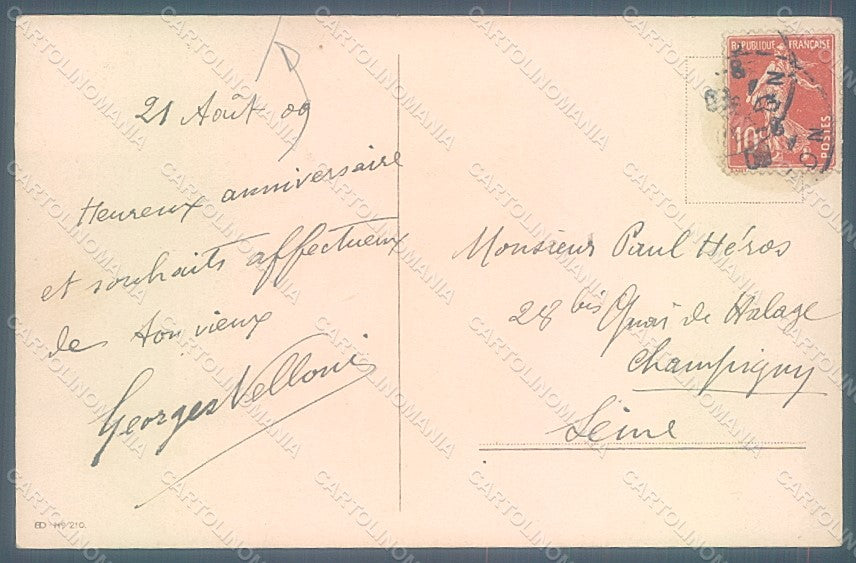 21 Août 09
Heureux anniversaire
et souhaits affectueux
de ton vieux
Georges Velloni
Monsieur Paul Héros
28 bis Quai de Halage
Champigny
Seine
REPUBLIQUE FRANÇAISE
10c
POSTES
CARTOLINOMANIA